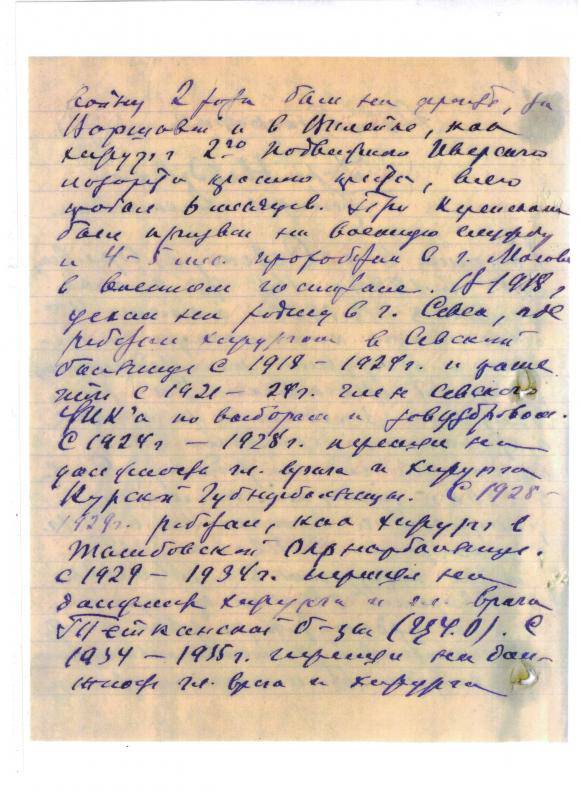 войну 2 года был на фронте, у
Варшавы и в Вилейке, как
хирург 2го подвижного Иверского
лазарета красного креста, всего
пробыл 6 месяцев. При Керенском
был призван на военную службу
и 4-5 мес. проработал в г. Москве
в военном госпитале. В 1918 г.
уехал на родину в г. Севск, где
работал хирургом в Севской
больнице с 1918 – 1924г. и даже
с 1921 – 24г. член Севского
УИК'а по выборам и
С 1924г – 1928г. перешел на
должность гл. врача и хирурга
Курской Губ больницы. С 1928-
1929г. работал, как хирург в
Окр больнице.
С 1929 – 1934г. перешел на
должн хирурга и гл. врача
Теткинской б-цы (ЦЧ.О). С
1934 – 1935г. перешел на дол-
жность гл. врача и хирурга